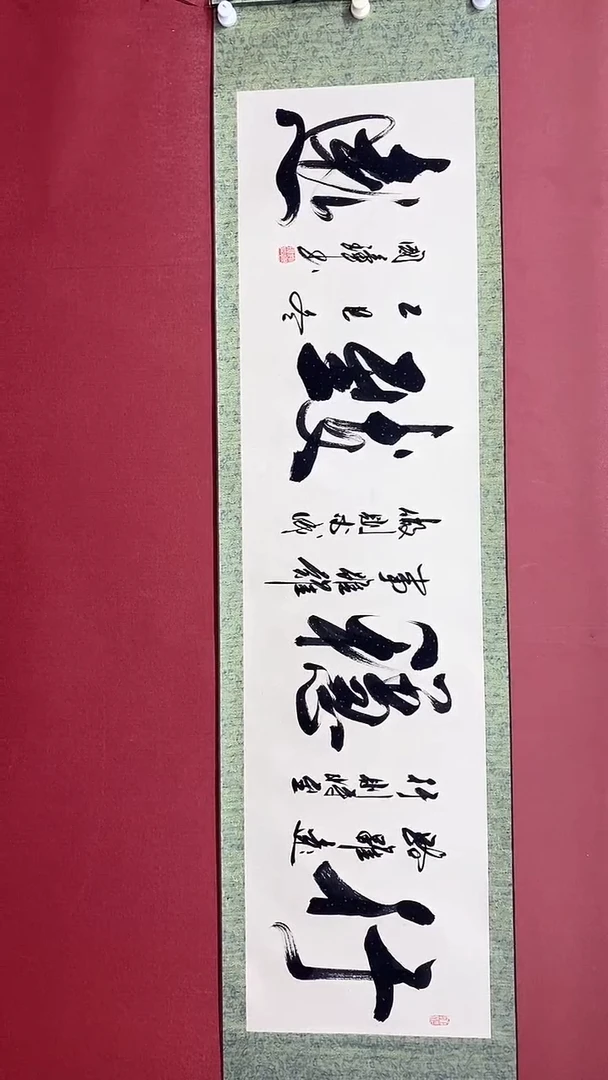 行
路雖遠
行則將至
穩
事雖難
做則必成
致
乙巳冬
遠